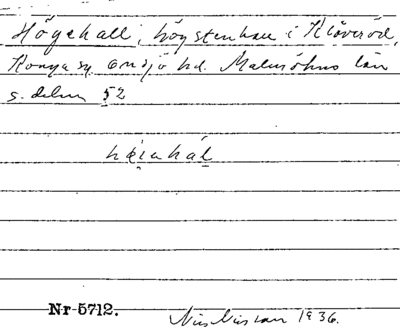 Högehall, högstenhus i Klöveröd,
Konga sn Onsjö hd. Malmöhus län
s. delen §2
høiahál
Nr 5712. Nils Nilsson 1936.